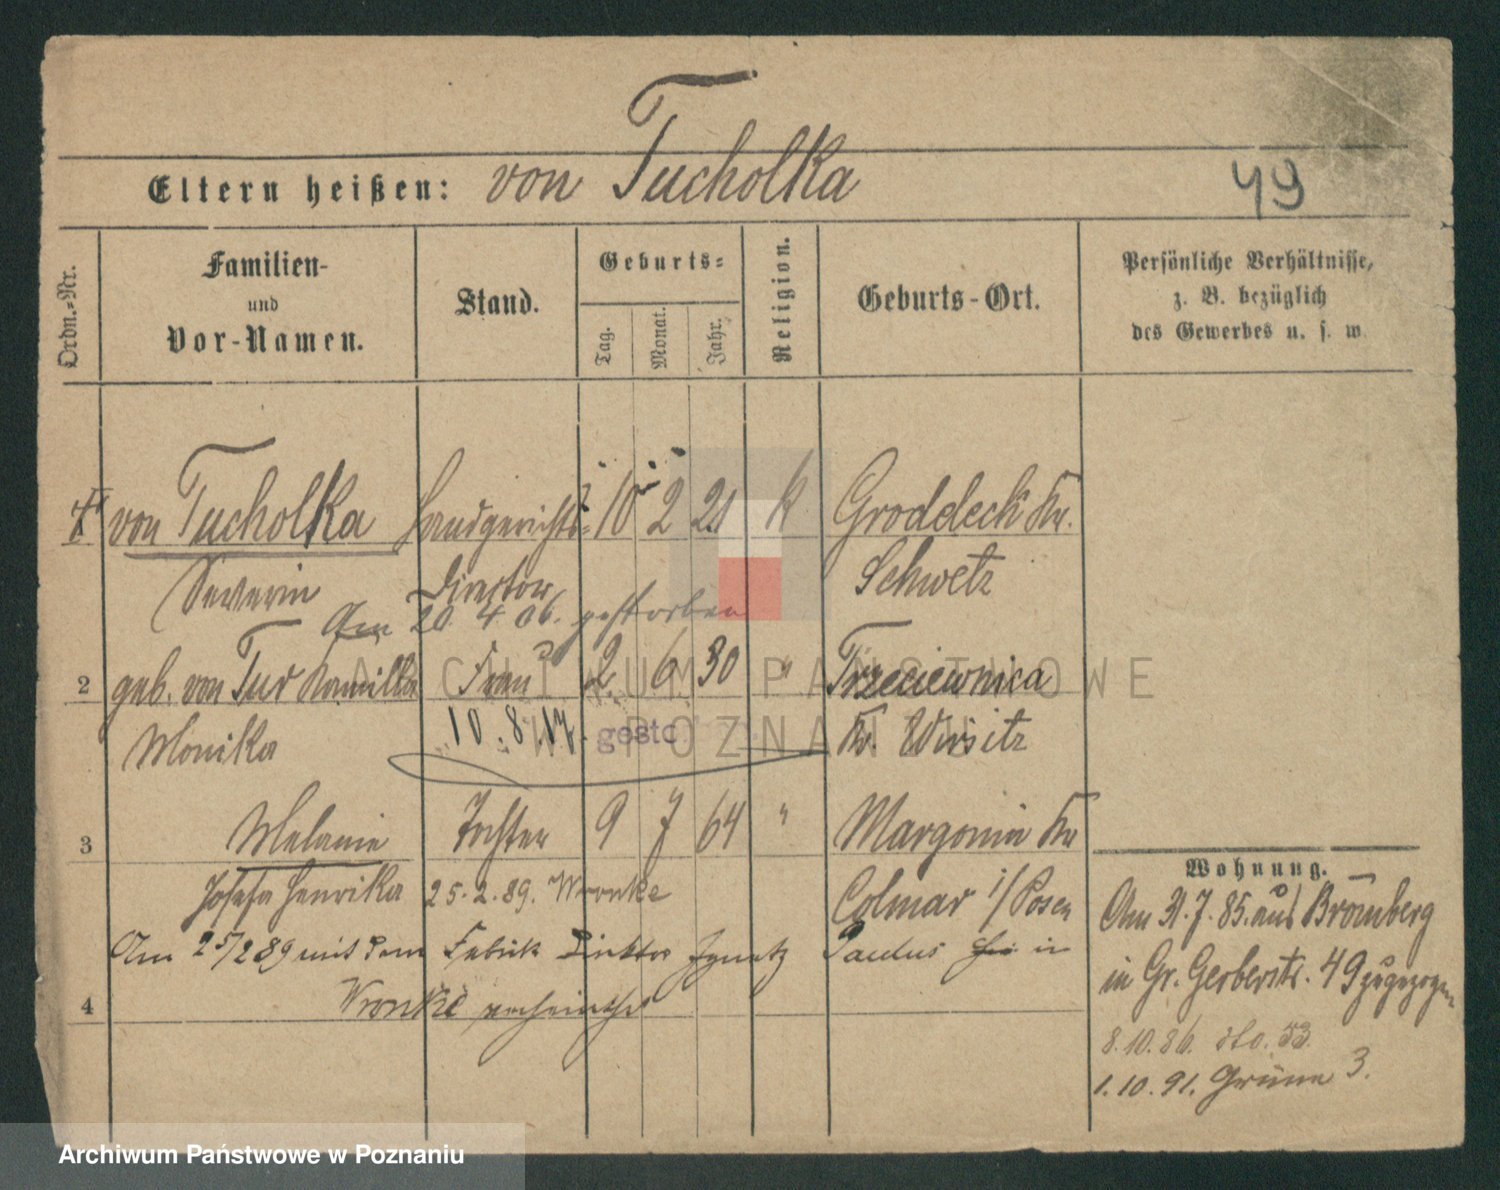 Tucholka
Eltern heißen: von Tucholka
49
Ordn.-Nr.
Familien-
und
Vor-Namen.
Stand.
Geburts-
Tag.
Monat.
Jahr.
Religion.
Geburts-Ort.
Persönliche Verhältnisse,
z. B. bezüglich
des Gewerbes u. s. w.
1 von Tucholka Landgerichts- 10 2 21 k Groddeck Kr.
Severin Direktor Schwetz
Am 20. 4. 06. gestorben
2 geb. von Tur Kamilla Frau 2. 6 30 " Trzeciewnica
Monika 10. 8. 17. gesto Kr. Wirsitz
3 Melanie Tochter 9 7 64 " Margonin Kr
Josefa Henrika 25. 2. 89. Wronke Colmar i/Posen
Am 25/2 89 mit dem Fabrik Direktor Ignatz Paulus in
4 Wronke verheirathet
Wohnung.
Am 31. 7. 85. aus Bromberg
in Gr. Gerberstr. 49 zugezogen
8. 10. 86. dto. 53.
1. 10. 91. Grüne 3.
ARCHIWUM PAŃSTWOWE
W POZNANIU
Archiwum Państwowe w Poznaniu